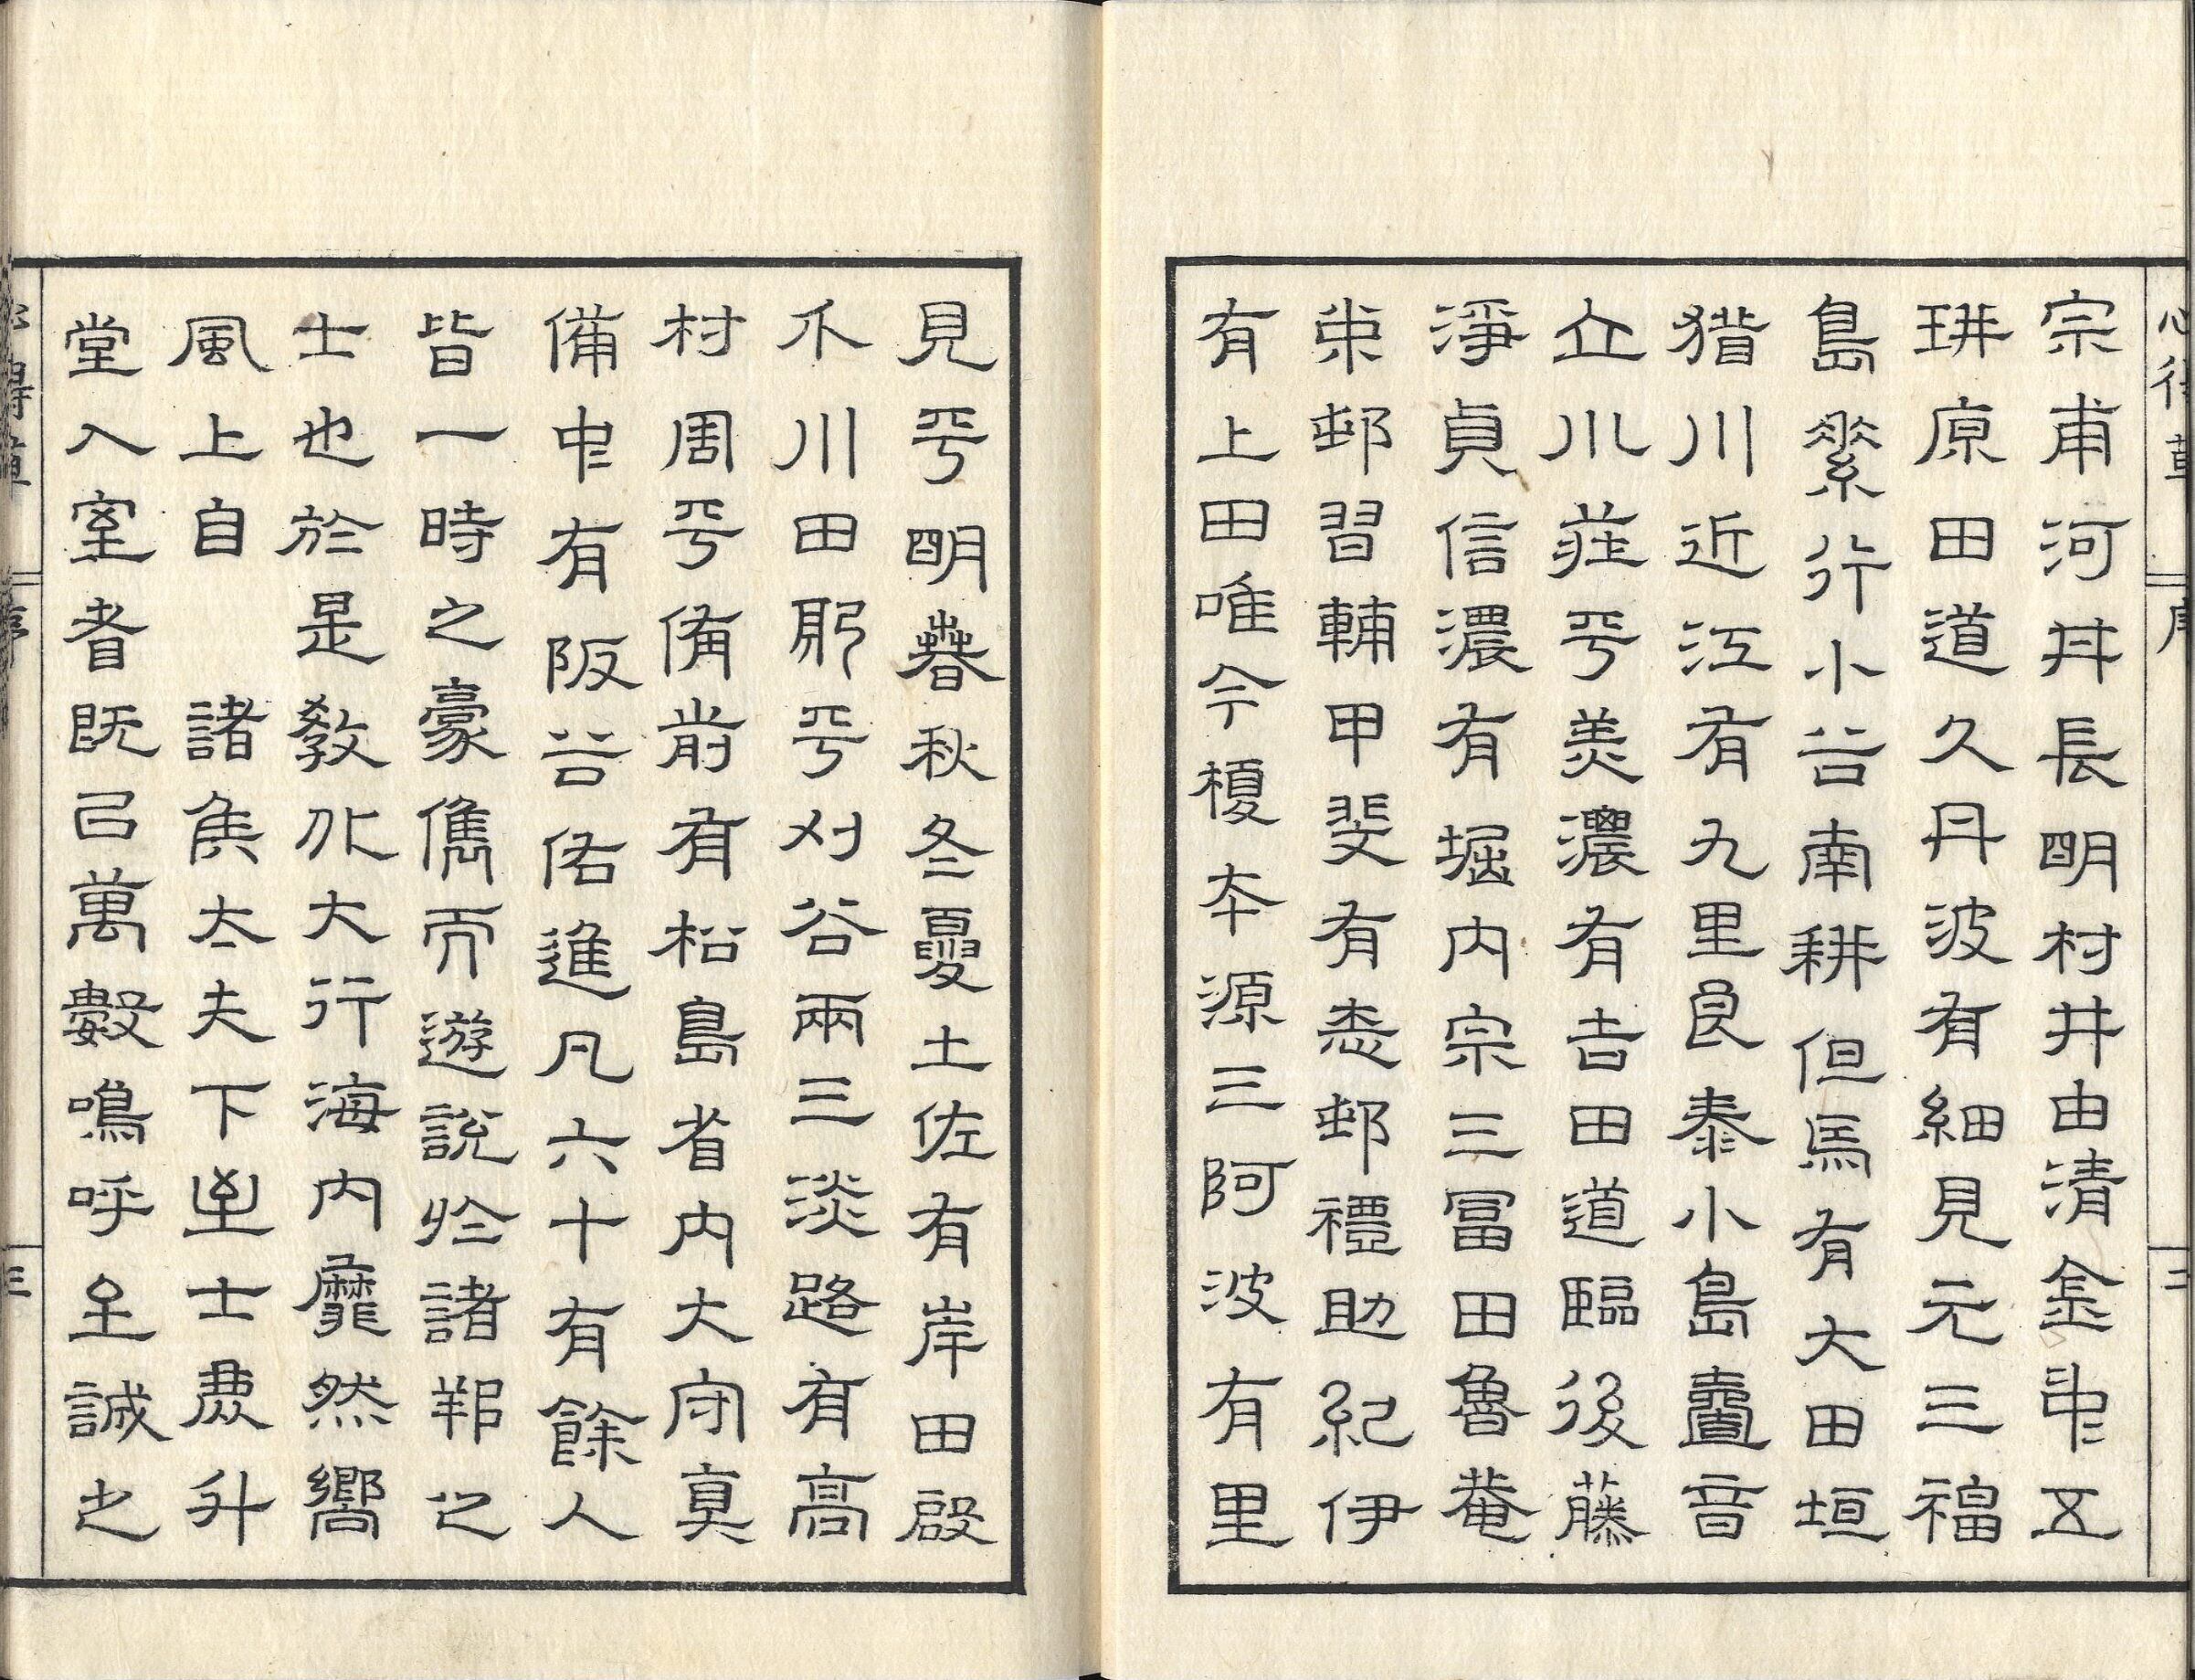 宗甫河井長明村井由清金中五
耕原田道久丹波有細見元三福
島索行小谷南耕但馬有大田垣
猎川近江有九里良泰小島壽音
立川荘平美濃有吉田道臨後藤
淨貞信濃有堀内宗三冨田魯菴
柴邨習輔甲斐有志邨禮助紀伊
有上田唯今榎本源三阿波有里
見平明春秋冬夏土佐有岸田啟
介川田耶平刈谷兩三淡路有高
村周平備前有松島省内大守真
備中有阪谷佑進凡六十有餘人
皆一時之豪儁而遊説於諸邦之
士也於是教化大行海内靡然嚮
風上自 諸矦太夫下至士庶升
堂入室者既已萬數嗚呼至誠之
心得草 序
三